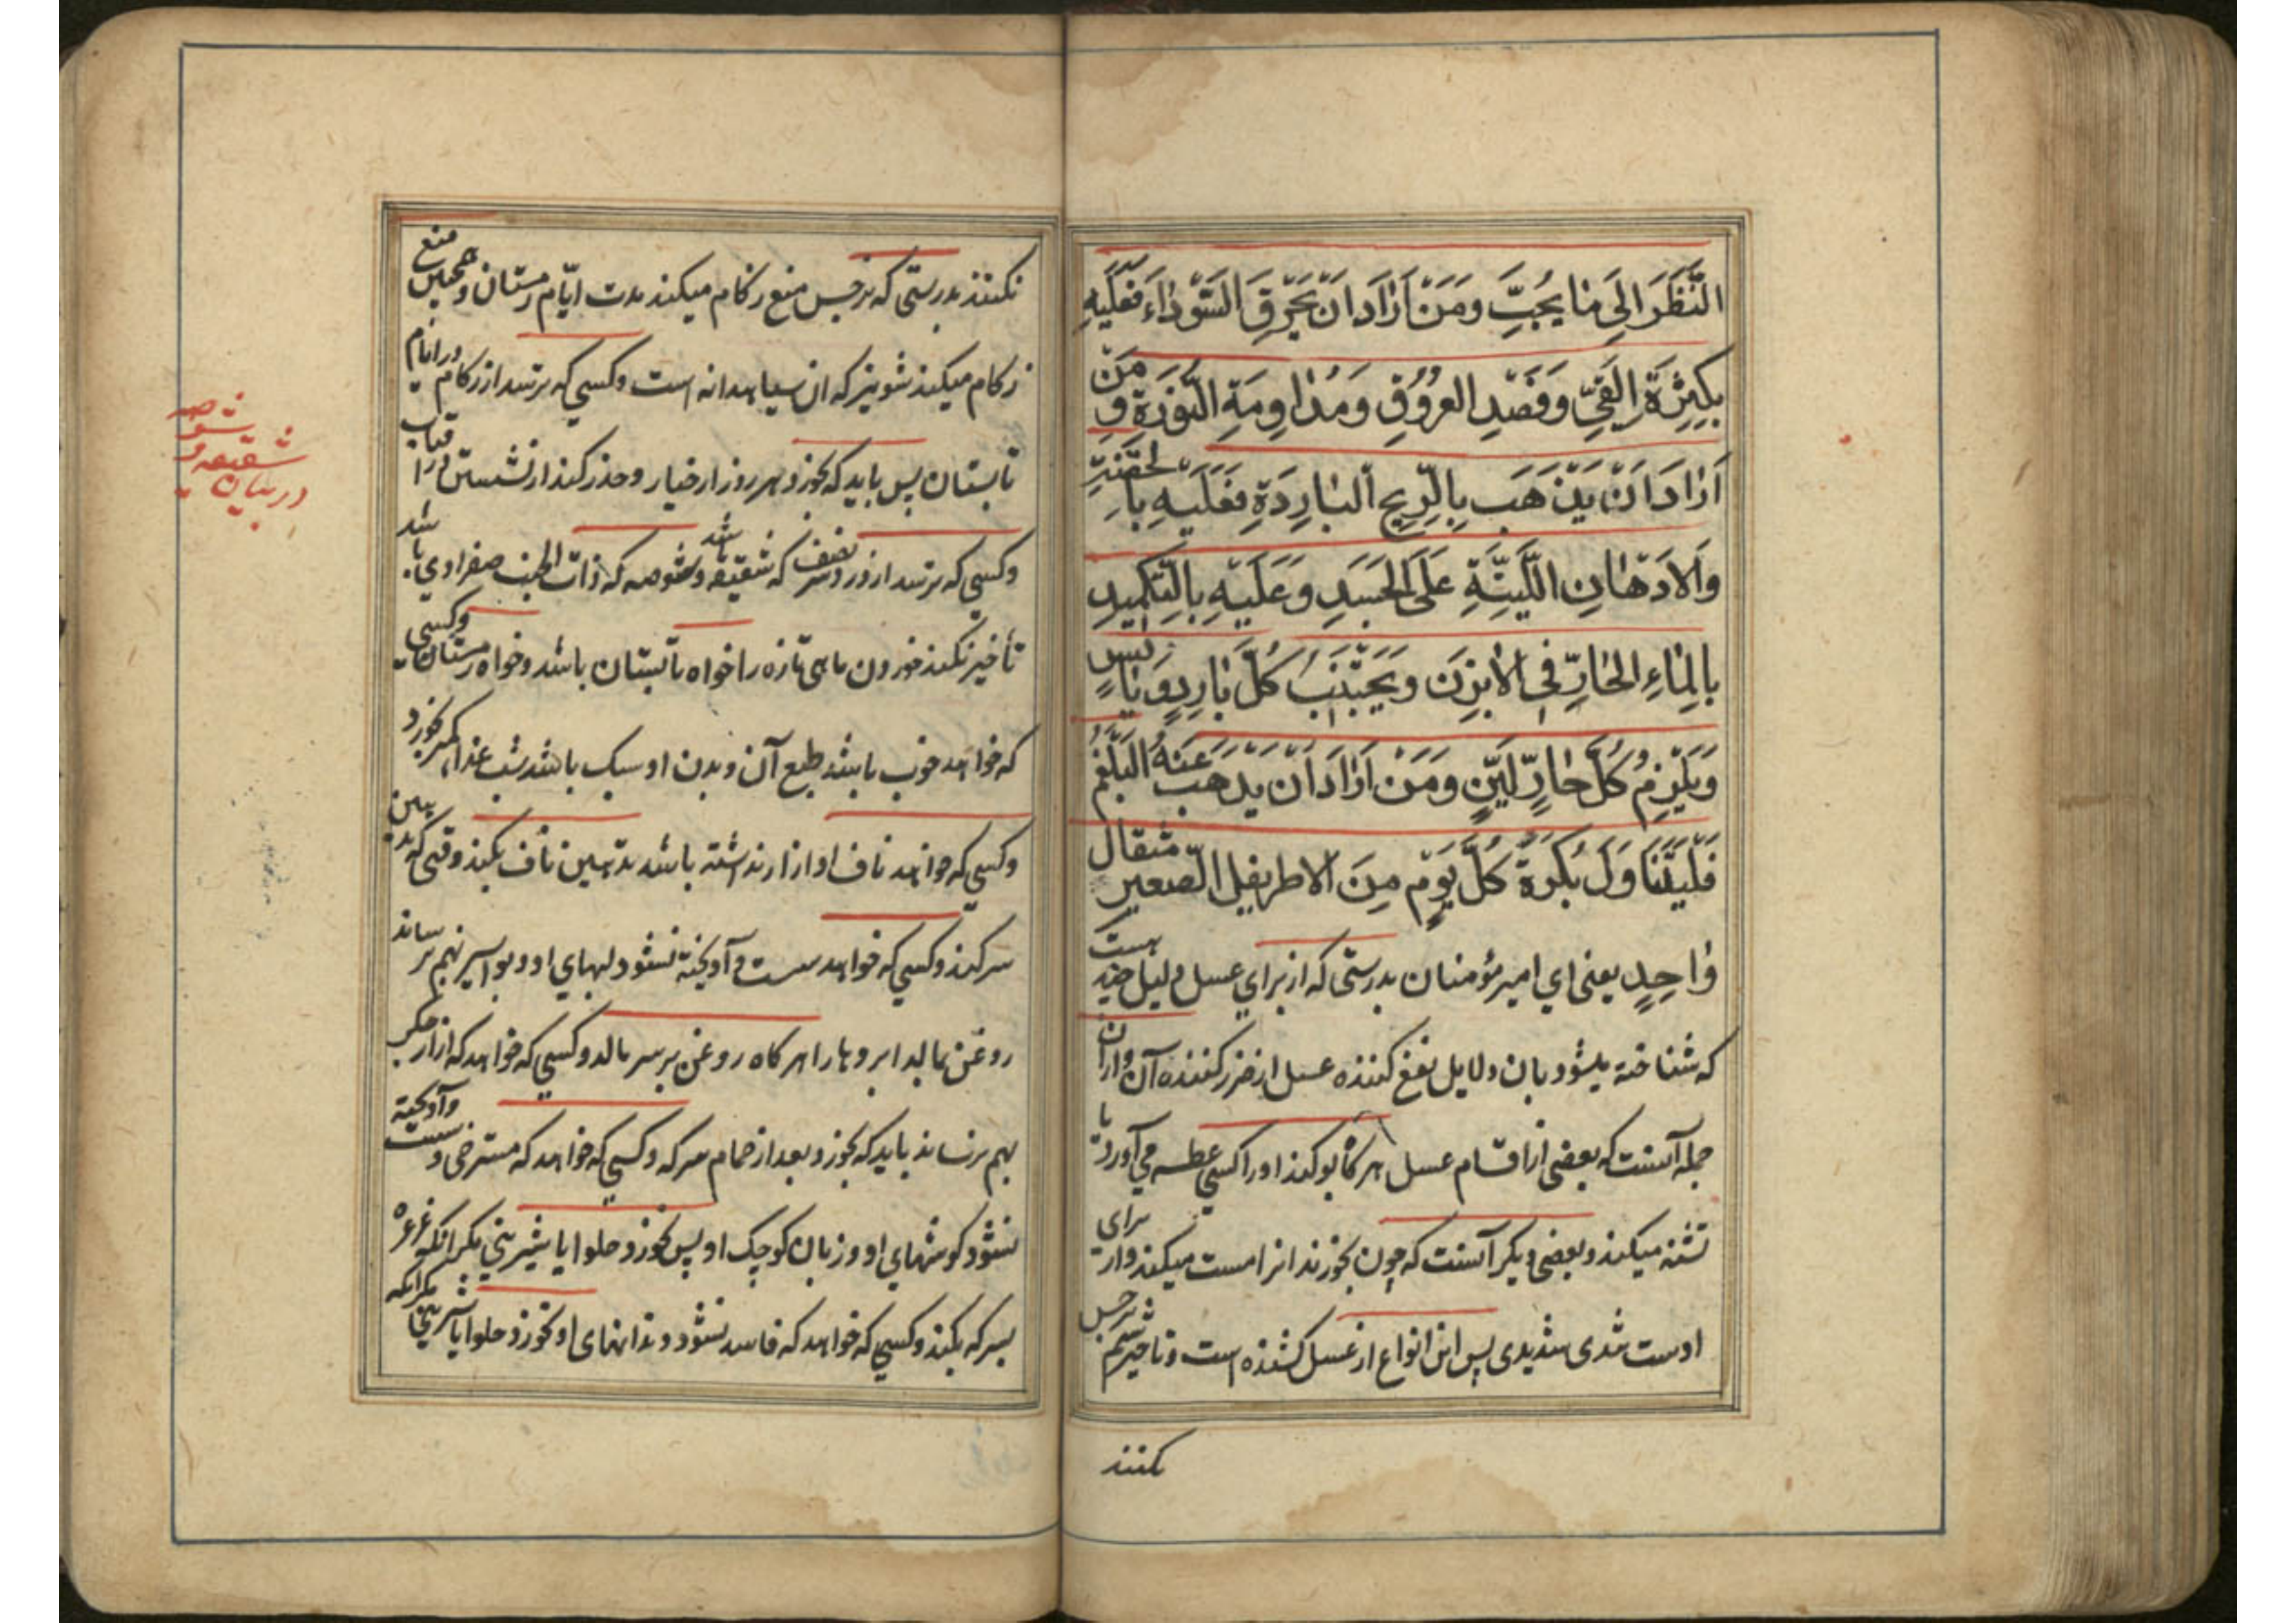 النَّظَرَ اِلَی مٰا یُحِبُّ وَمَنْ اَرٰادَ اَنْ یُحْرِقَ السَّوْدٰاءَ فَعَلَیْهِ
بِکَثْرَةِ القَیِّ وَفَصْدِ العُرُوُقِ وَمُدٰاوِمَةِ النُّورَةِ وَمَنْ
اَرٰادَ اَنْ یَذْهَبَ بِالرِّیحِ البٰارِدَةِ فَعَلَیْهِ بِالحُقْنَةِ
وَالاَدْهٰانِ اللَّیِّنَةِ عَلَی الجَسَدِ وَعَلَیْهِ بِالتَّکْمِیدِ
بِالمٰاءِ الحٰارِّ فِی الاَبْزَنِ وَیَجْتَنِبُ کُلَّ بٰارِدٍ وَ یٰابِسٍ
وَیَلْزِمُ کُلَّ حٰارٍّ لَیِّنٍ وَمَنْ اَرٰادَ اَنْ یَذْهَبَ عَنْهُ البَلْغَمُ
فَلْیَتَنٰاوَلْ بُکْرَةً کُلَّ یَوْمٍ مِنَ الاطریفل الصَّغیر مثقال
وٰاحِدٍ یعنی ای امیر مؤمنان بدرستی که از برای عسل دلیل چند هست
که شناخته میشود بان دلایل نفع کننده عسل از ضرر کننده آن و از ان
جمله آنست که بعضی از اقسام عسل هرکاه بو کند او را کسی عطسه می آورد یا
تشنه میکند و بعضی دیکر آنست که چون بخورند انرا مست میکند و از برای
اوست تندی شدیدی پس این انواع از عسل کشنده است و تاخیر شم نرجس
نکنند
نکنند بدرستی که نرجس منع زکام میکند مدت ایّام زمستان و همچنین منع
زکام میکند شونیز که ان سیاهدانه است و کسی که بترسد از زکام در ایام
تابستان پس باید که بخورد هر روز ار خیار و حذر کند از نشستن در افتاب
و کسی که بترسد از درد نصف سر که شقیقه باشد و شوصه که ذات الجنب صفراوی باشد
تأخیر نکند خوردن ماهی تازه را خواه تابستان باشد و خواه زمستان و کسی
که خواهد خوب باشد طبع آن و بدن او سبک باشد شب غذا کمتر بخورد
و کسی که خواهد ناف او ازار نداشته باشد تدهین ناف بکند وقتی که تدهین
سر کند و کسی که خواهد سست و آویخته نشود لبهای او و بواسیر نهم رساند
روغن بمالد ابروها را هرکاه روغن بر سر مالد و کسی که خواهد که ازار مکر
بهم نرساند باید که بخورد بعد از حمام سرکه و کسی که خواهد که مسترخی و سست و آویخته
نشود کوشهای او و زبان کوچک او پس نخورد حلوا یا شیرینی مکر انکه غرغره
بسرکه بکند و کسی که خواهد که فاسد نشود دندانهای او نخورد حلوا یا شیرینی مکر انکه
در بیان
شقیقه و
شوصه